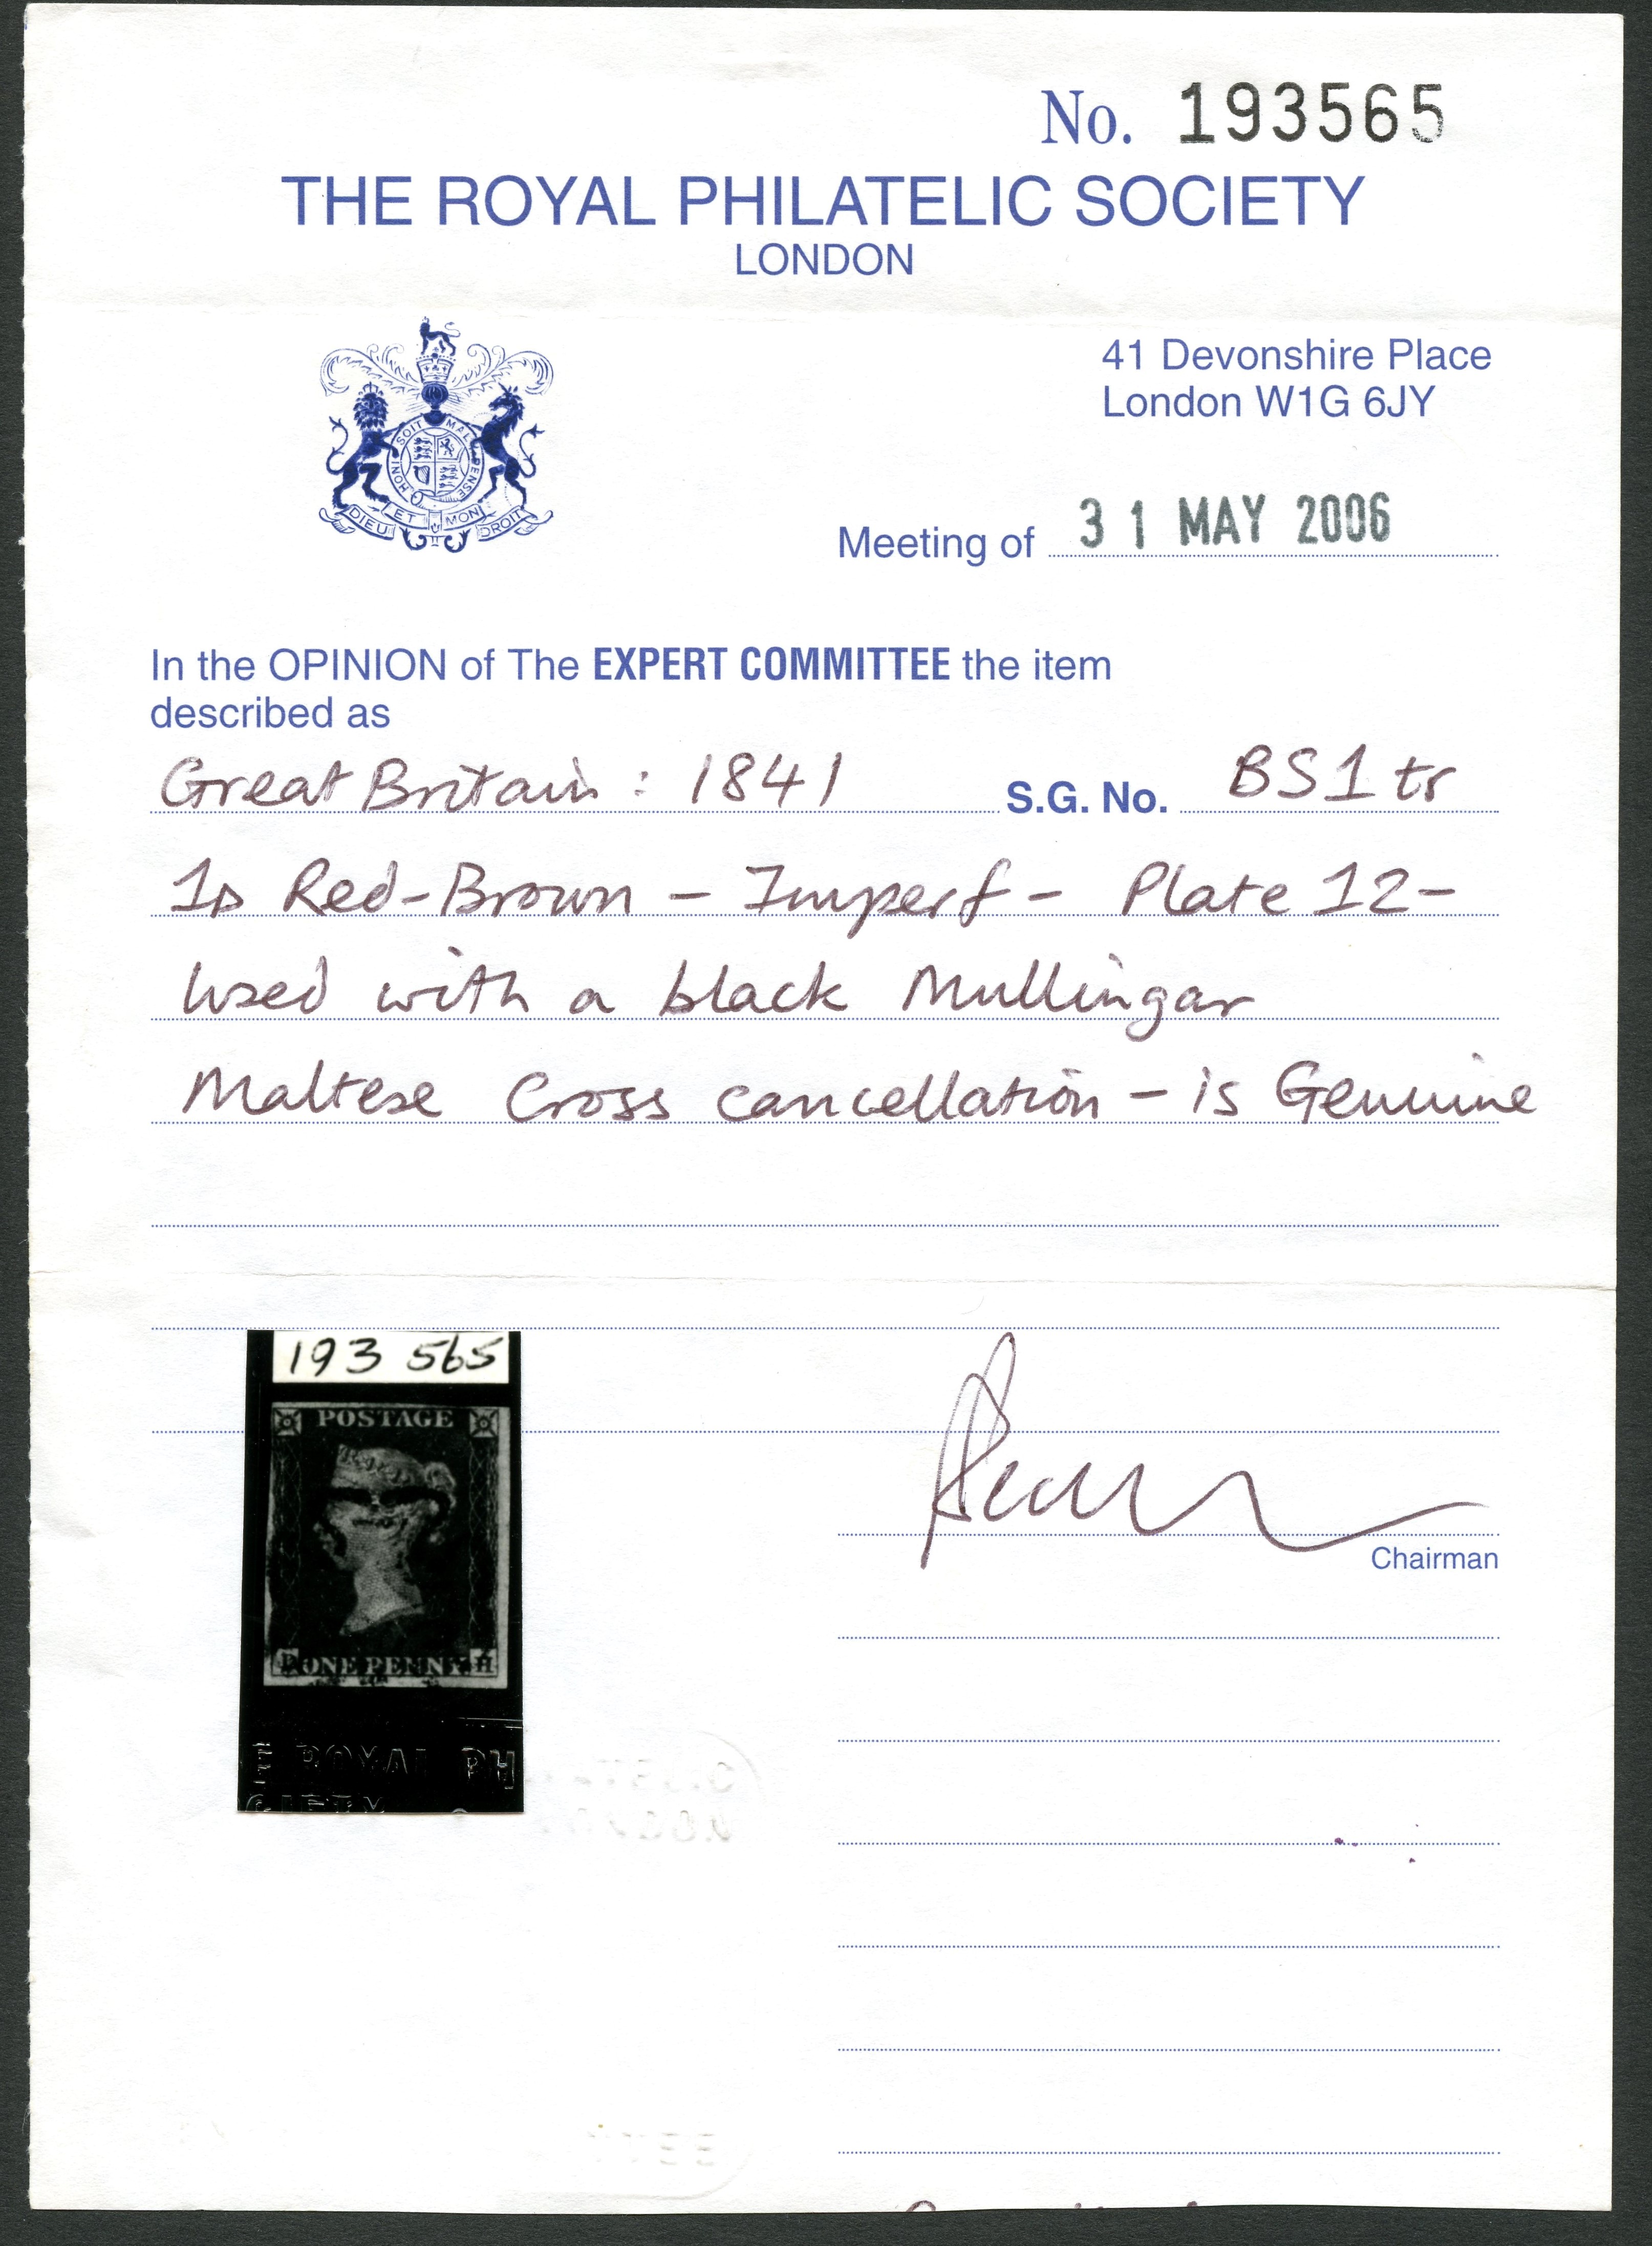 No. 193565
THE ROYAL PHILATELIC SOCIETY
LONDON
HONI SOIT MAL PENSE
DIEU ET MON DROIT
41 Devonshire Place
London W1G 6JY
Meeting of 31 MAY 2006
In the OPINION of The EXPERT COMMITTEE the item
described as
Great Britain: 1841 S.G. No. BS1tr
1D Red-Brown - Imperf - Plate 12-
Used with a black Mullingar
Maltese Cross cancellation - is Genuine
193 565
POSTAGE
ONE PENNY H
E ROYAL PH
CIETY
Chairman